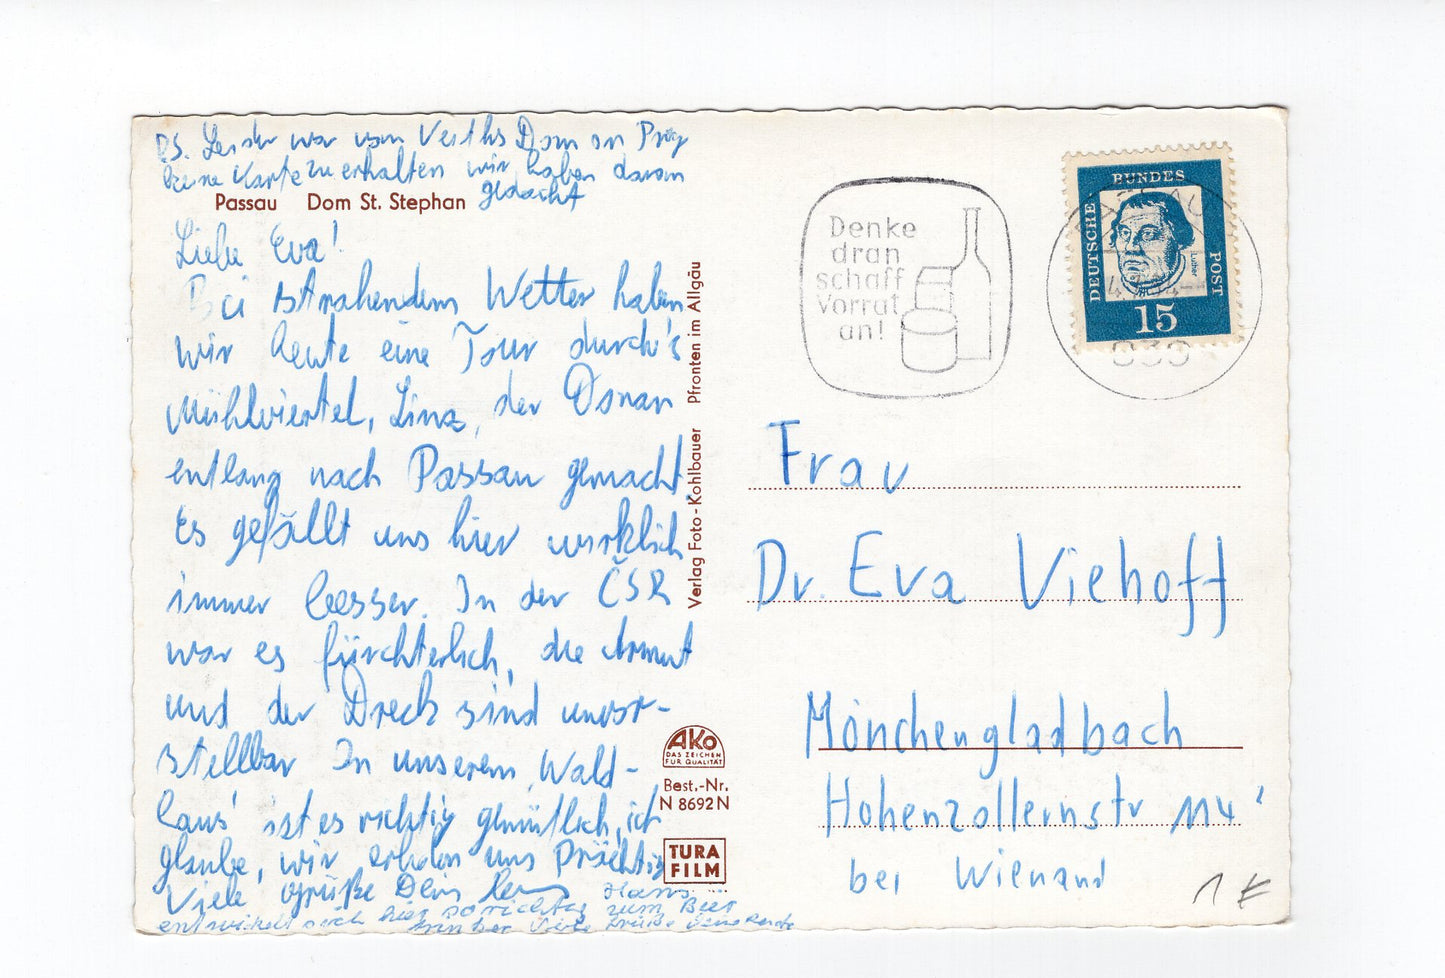 PS. Leider war vom Veiths Dom in Prag
keine Karte zu erhalten wir haben daran
gedacht
Passau Dom St. Stephan
Liebe Eva!
Bei strahendem Wetter haben
wir heute eine Tour durch's
Mühlviertel, Linz, der Donau
entlang nach Passau gemacht.
Es gefällt uns hier wirklich
immer besser. In der ČSR
war es fürchterlich, die Armut
und der Dreck sind unvor-
stellbar In unserem Wald-
haus ist es richtig gemütlich, ich
glaube, wir erholen uns prächtig
Viele Grüße Dein
Hans
entwickelt sich hier so richtig zum Bier
trinker Viele Grüße Deine
Verlag Foto-Kohlbauer Pfronten im Allgäu
AKO
DAS ZEICHEN
FÜR QUALITÄT
Best.-Nr.
N 8692 N
TURA
FILM
Denke
dran
schaff
Vorrat
an!
DEUTSCHE
BUNDES
POST
Luther
15
Frau
Dr. Eva Viehoff
Mönchengladbach
Hohenzollernstr 114
bei Wienand
1 €